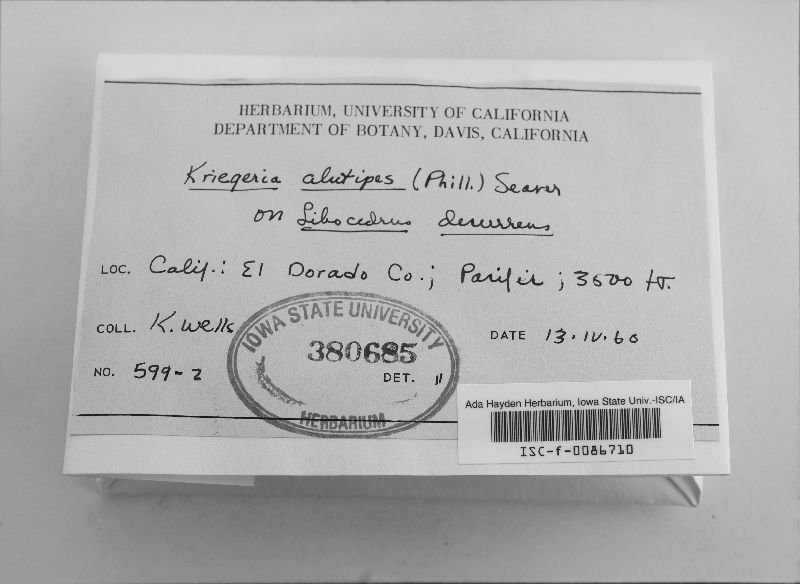 HERBARIUM, UNIVERSITY OF CALIFORNIA
DEPARTMENT OF BOTANY, DAVIS, CALIFORNIA
Kriegeria alutipes (Phill.) Seaver
on Libocedrus decurrens
LOC. Calif.: El Dorado Co.; Pacific; 3500 ft.
COLL. K. Wells
DATE 13.IV.60
NO. 599-2
DET. "
IOWA STATE UNIVERSITY
380685
HERBARIUM
Ada Hayden Herbarium, Iowa State Univ.-ISC/IA
ISC-f-0086710